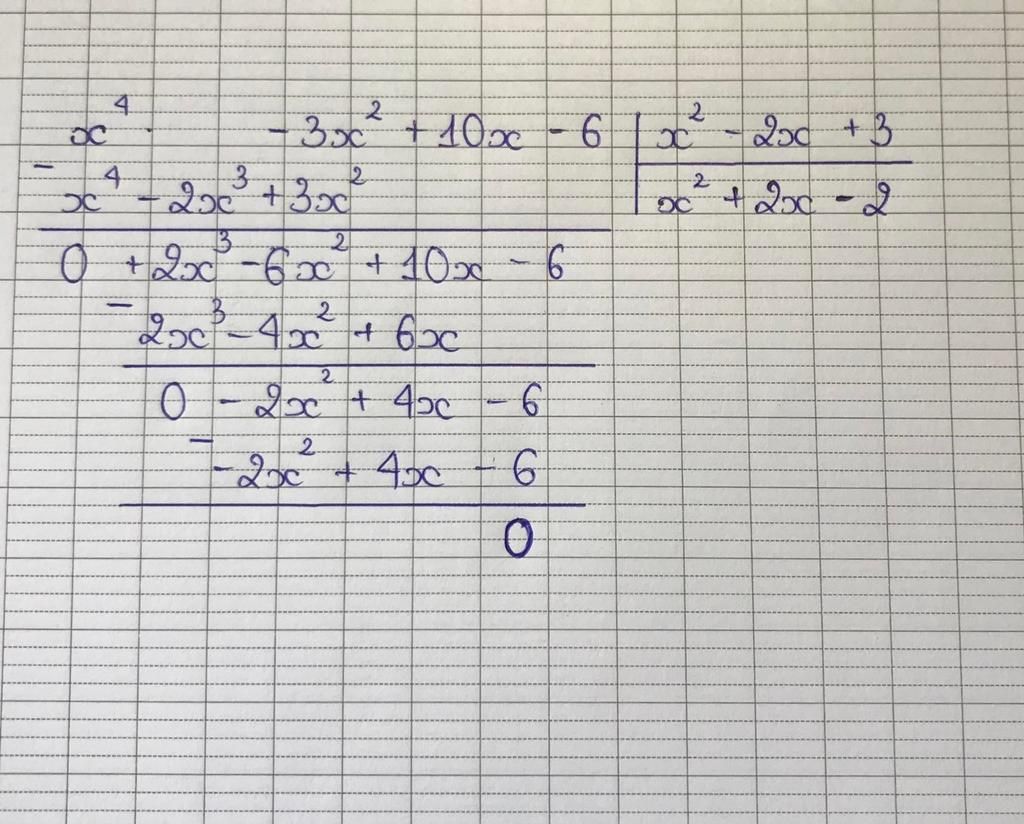 x⁴ - 3x² + 10x - 6 | x² - 2x + 3
- x⁴ - 2x³ + 3x² | x² + 2x - 2
0 + 2x³ - 6x² + 10x - 6
- 2x³ - 4x² + 6x
0 - 2x² + 4x - 6
- -2x² + 4x - 6
0